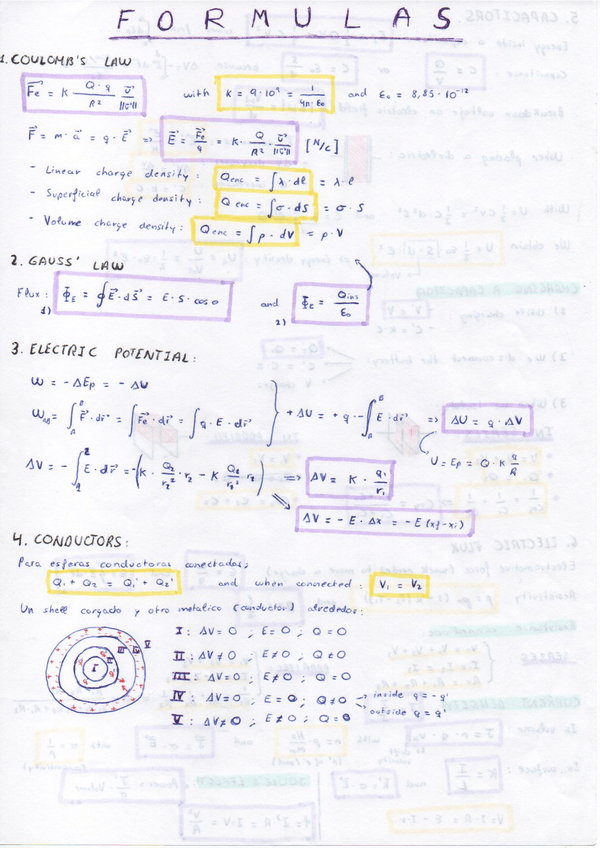 FORMULAS
1. COULOMB'S LAW
F⃗e = K Q·q/R² · ū/||ū|| with K = 9·10⁹ = 1/4π·ε₀ and ε₀ = 8,85·10⁻¹²
F⃗ = m·a⃗ = q·E⃗ => E⃗ = F⃗e/q = K· Q/R² · ū/||ū|| [N/C]
- Linear charge density: Qenc = ∫λ·dl = λ·l
- Superficial charge density: Qenc = ∫σ·dS = σ·S
- Volume charge density: Qenc = ∫ρ·dV = ρ·V
2. GAUSS' LAW
Flux: 1) Φ⃗E = ∮E⃗·dS⃗ = E·S·cosθ and 2) Φ⃗E = Qins/ε₀
3. ELECTRIC POTENTIAL:
W = -ΔEp = -ΔU
WAB = ∫F⃗·dr⃗ = ∫F⃗e·dr⃗ = ∫q·E·dr⃗ } +ΔU = +q·-∫E·dr⃗ => ΔU = q·ΔV
U = Ep = Q·K q/R
ΔV = -∫E·dr⃗ = -(K· Q₂/r₂² ·r₂ - K Q₂/r₂² r₂) => ΔV = K· q₁/r₁
ΔV = -E·Δx = -E(xf-xi)
4. CONDUCTORS:
Para esferas conductoras conectadas;
Q₁+Q₂ = Q₁'+Q₂' and when connected: V₁ = V₂
Un shell cargado y otro metalico (conductor) alrededor:
I: ΔV=0; E=0; Q=0
II: ΔV≠0; E≠0; Q≠0
III: ΔV=0; E≠0; Q=0
IV: ΔV=0; E=0; Q≠0 inside q=-q'
outside q=q'
V: ΔV≠0; E≠0; Q=0
I II III IV V